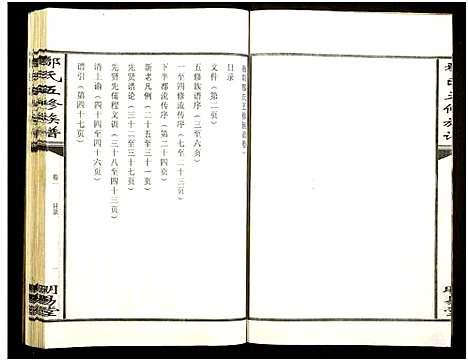 目录
文件（第二页）
五修族谱序（三至六页）
一至四修流传序（七至二十三页）
下半部流传序（第二十四页）
新老凡例（二十五至三十一页）
先贤谱论（三十二至三十七页）
先贤先儒程文训（三十八至四十三页）
清上谕（四十四至四十六页）
谱引（第四十七页）
邹氏五修族谱
卷一
目录